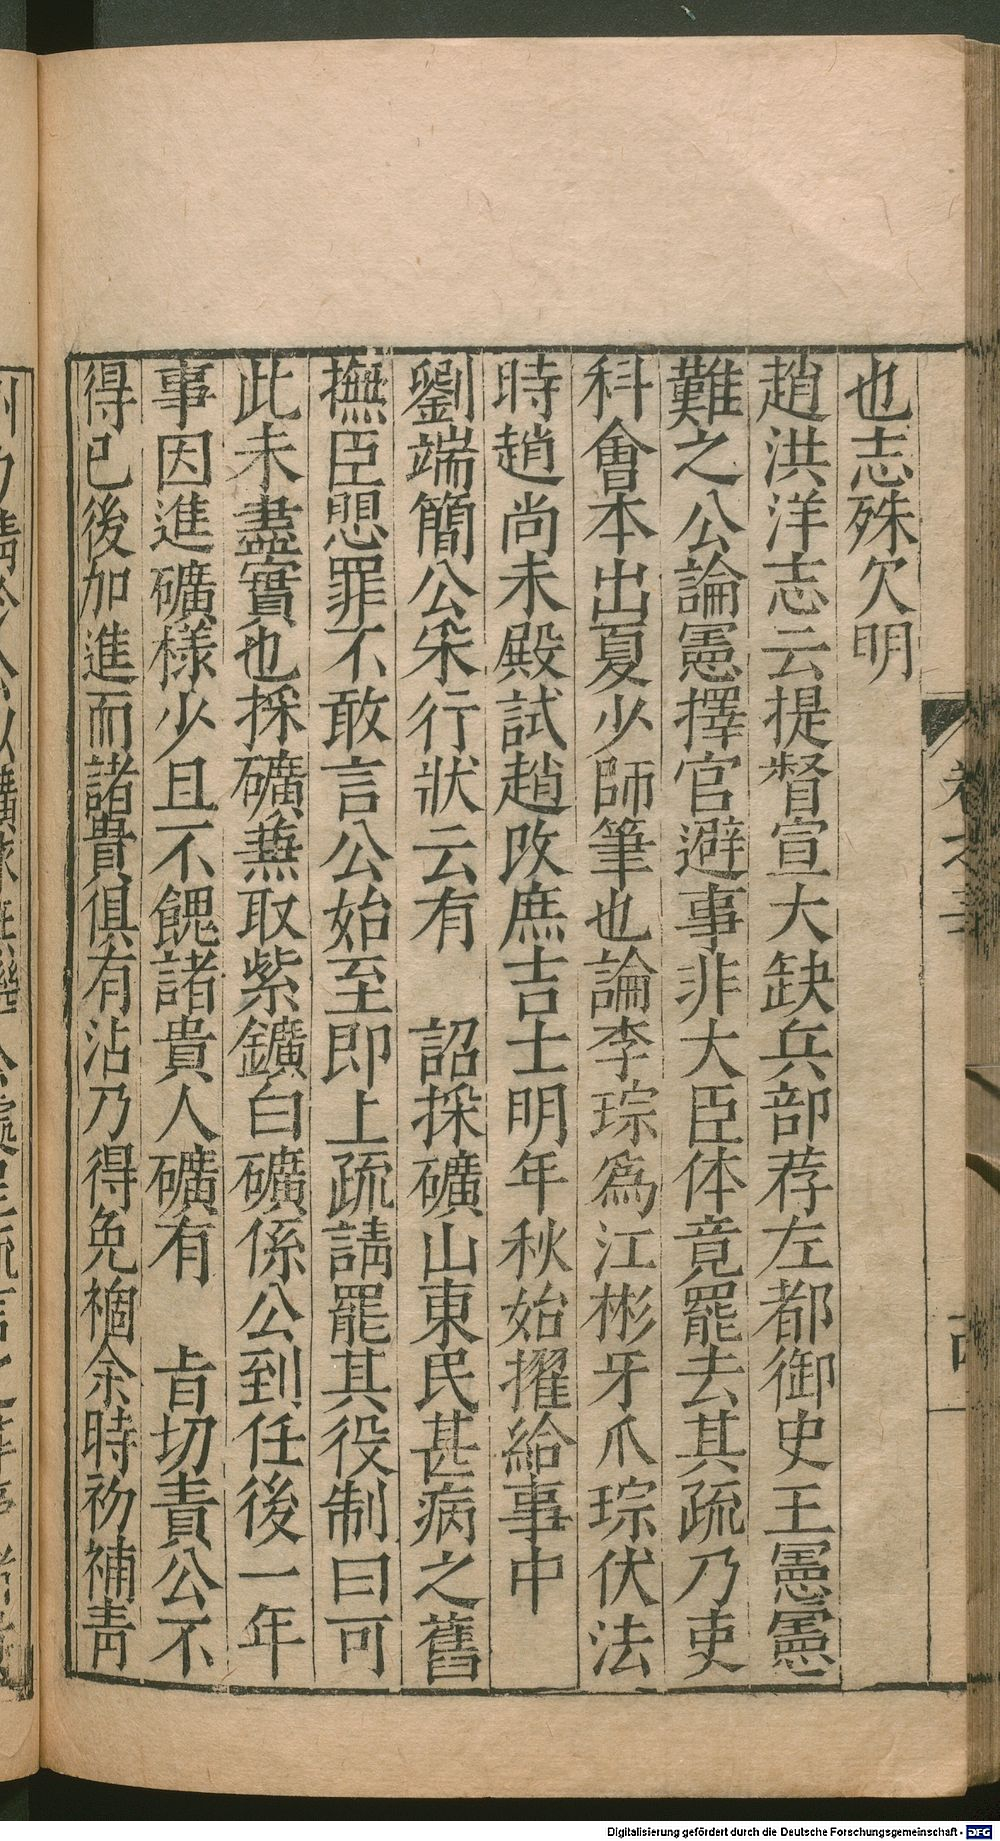 也志殊欠明
趙洪洋志云提督宣大缺兵部荐左都御史王憲憲
難之公論憲擇官避事非大臣体竟罷去其疏乃吏
科會本出夏少師筆也論李琮爲江彬牙爪琮伏法
時趙尚未殿試趙改庶吉士明年秋始擢給事中
劉端簡公采行狀云有　詔採礦山東民甚病之舊
撫臣愳罪不敢言公始至即上疏請罷其役制曰可
此未盡實也採礦蕪取紫鑛白礦係公到任後一年
事因進礦樣少且不餽諸貴人礦有　㫖切責公不
得已後加進而諸貴俱有沾乃得免禍余時初補青
卷之三
Digitalisierung gefördert durch die Deutsche Forschungsgemeinschaft - DFG